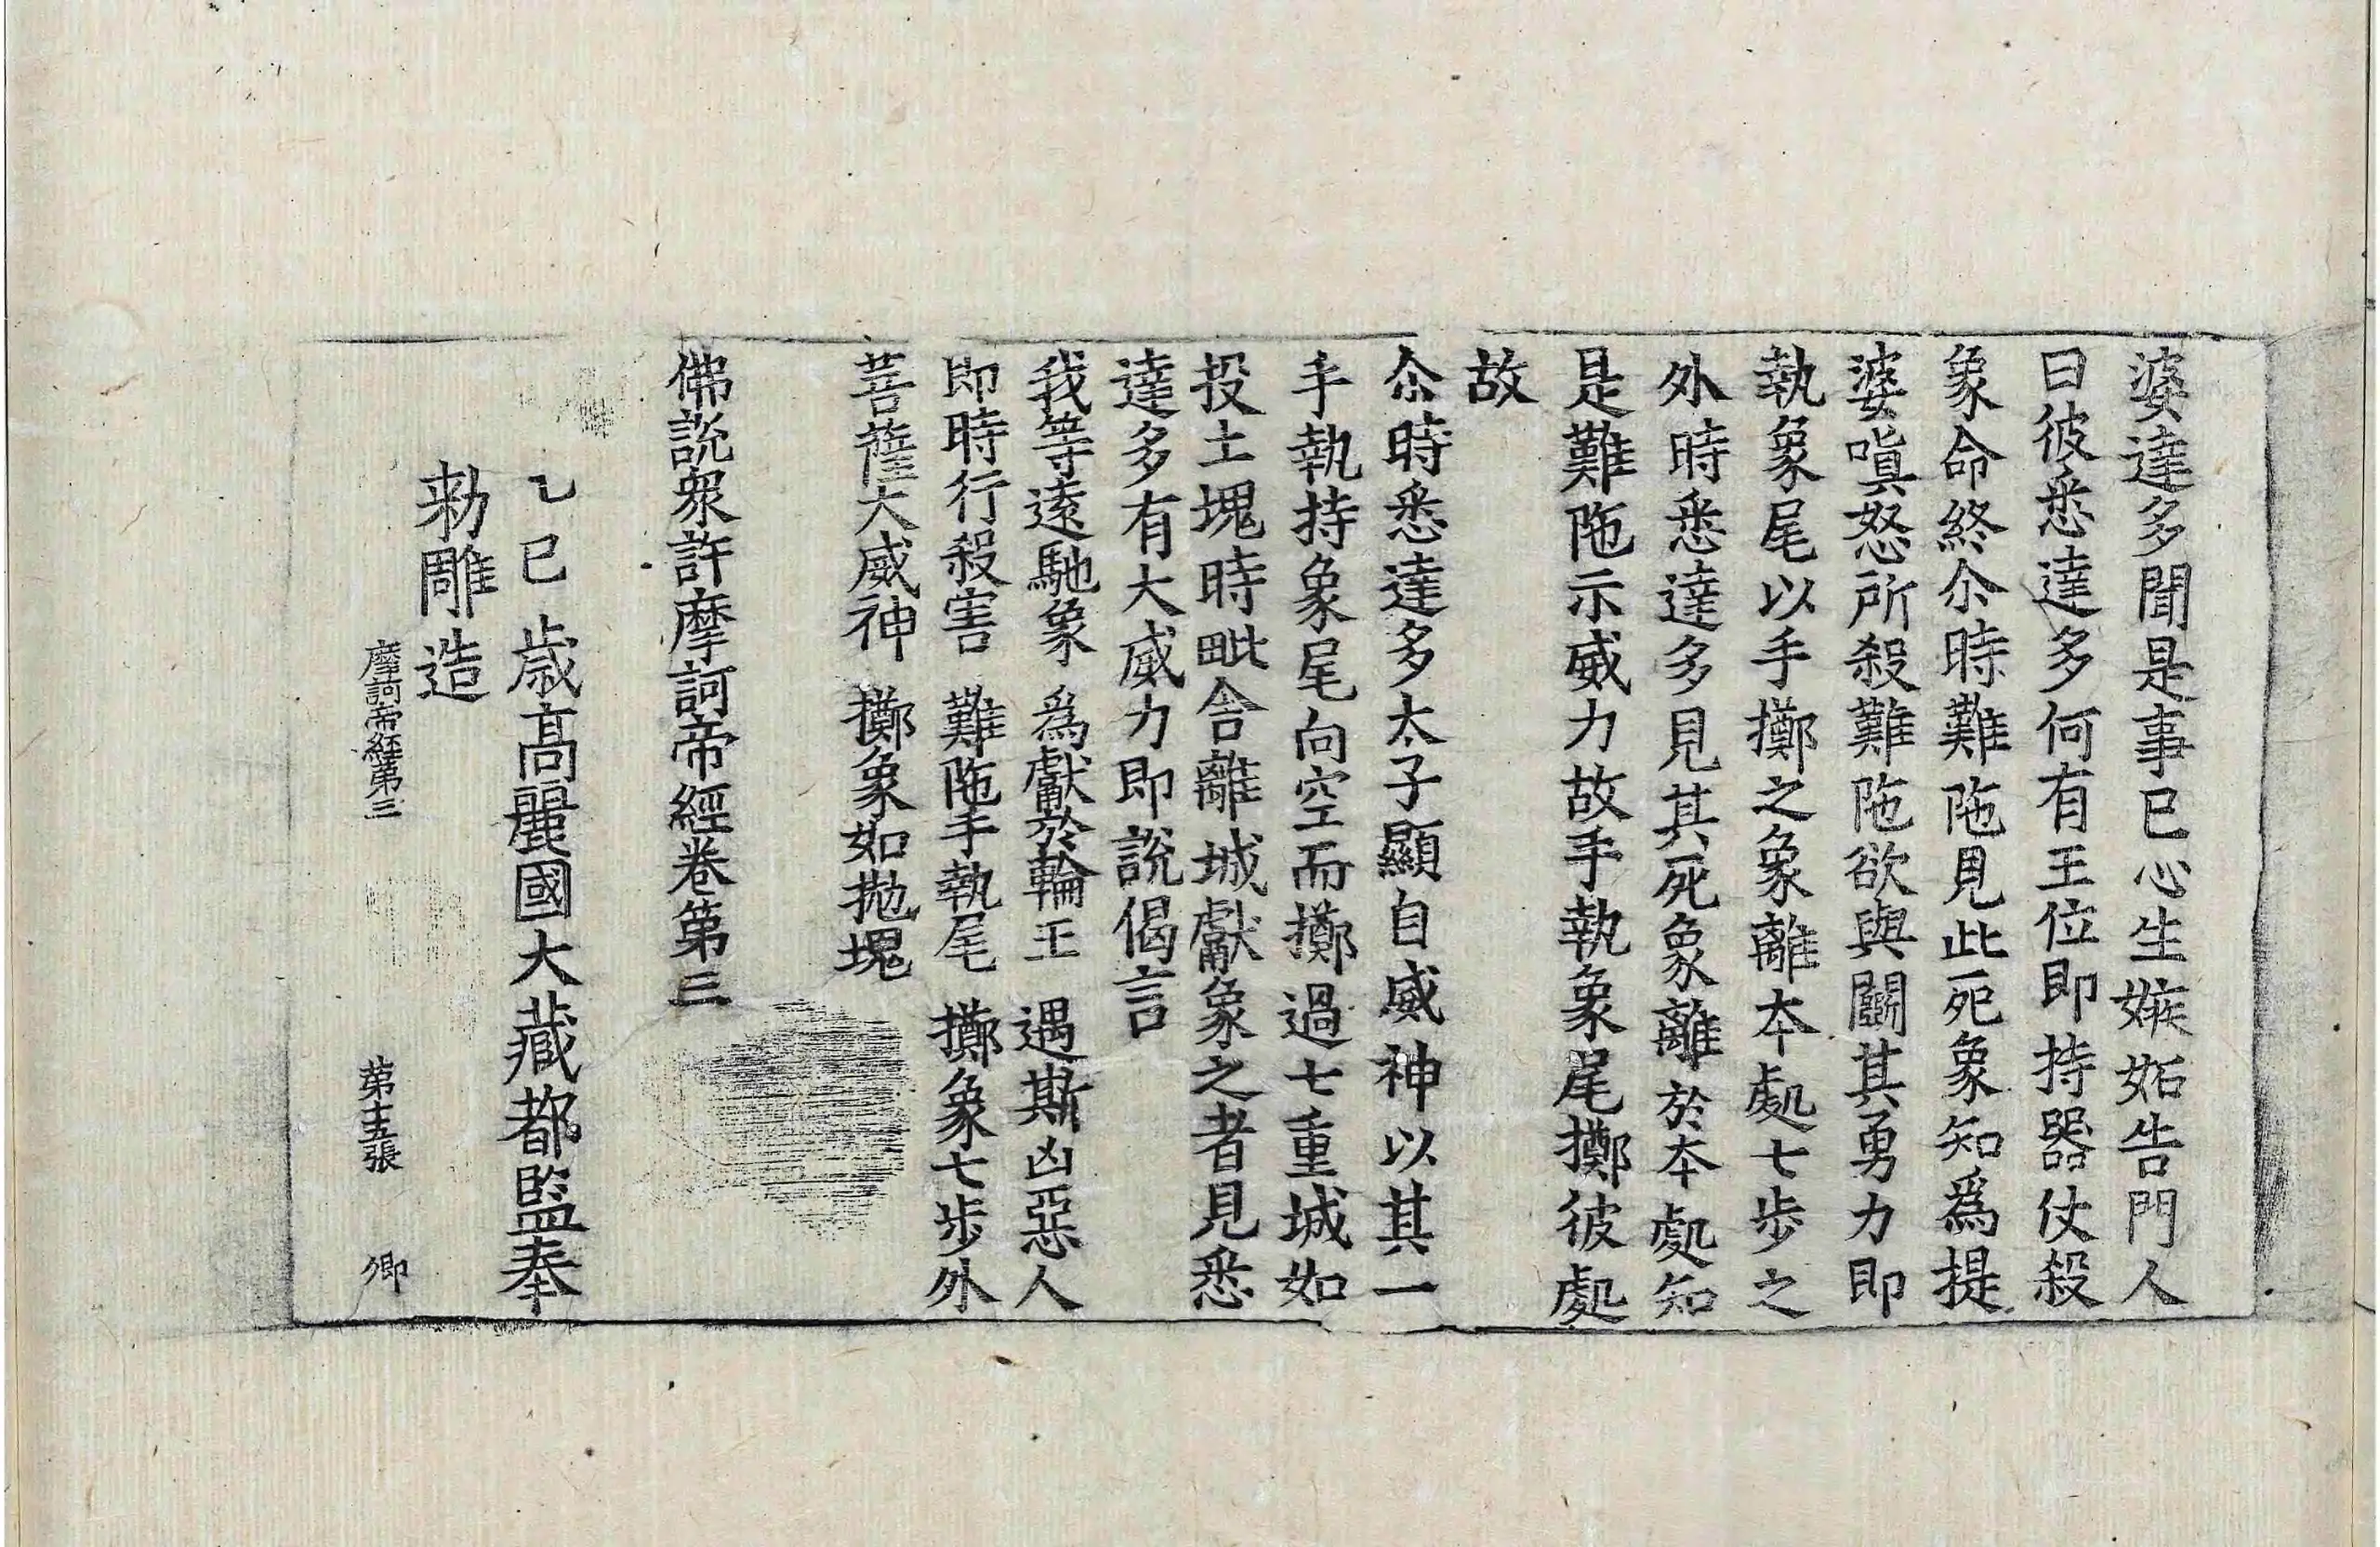 婆達多聞是事已心生嫉妬告門人
曰彼悉達多何有王位即持器仗殺
象命終尒時難陁見此死象知爲提
婆嗔怒所殺難陁欲與鬪其勇力即
執象尾以手擲之象離本處七步之
外時悉達多見其死象離於本處知
是難陁示威力故手執象尾擲彼處
故
尒時悉達多太子顯自威神以其一
手執持象尾向空而擲過七重城如
投土塊時毗舍離城獻象之者見悉
達多有大威力即說偈言
我等遠馳象 爲獻於輪王 遇斯凶惡人
即時行殺害 難陁手執尾 擲象七步外
菩薩大威神 擲象如拋塊
佛說衆許摩訶帝經卷第三
乙巳歲高麗國大藏都監奉
勑雕造
摩訶帝經第三 第十五張 卿